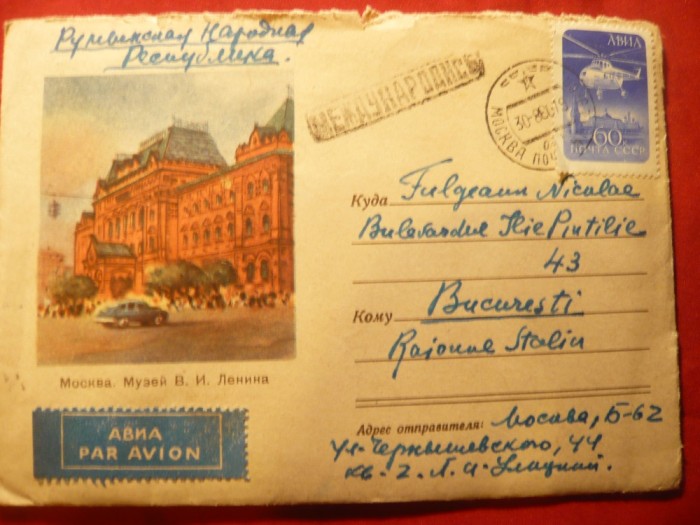 Румынская Народная
Республика.
МЕЖДУНАРОДНОЕ
АВИА
60
ПОЧТА СССР
МОСКВА
Куда Fulgeanu Nicolae
Bulevardul Ilie Pintilie
43
Кому Bucuresti
Raionul Stalin
Москва. Музей В. И. Ленина
АВИА
PAR AVION
Адрес отправителя: Москва, Б-62
ул. Чернышевского, 44
кв. 2. Л. И.